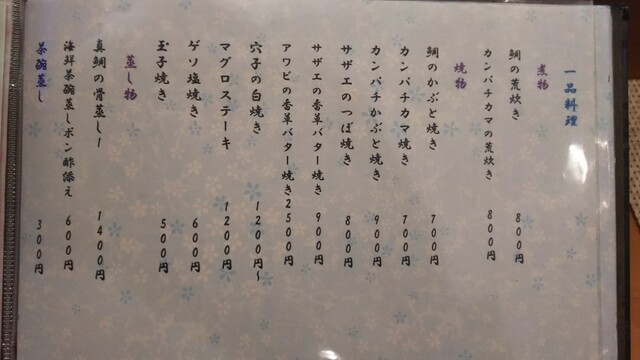 一品料理
煮物
鯛の荒炊き 800円
カンパチカマの荒炊き 800円
焼物
鯛のかぶと焼き 700円
カンパチカマ焼き 700円
カンパチかぶと焼き 900円
サザエのつぼ焼き 800円
サザエの香草バター焼き 900円
アワビの香草バター焼き 2500円
穴子の白焼き 1200円〜
マグロステーキ 1200円
ゲソ塩焼き 600円
玉子焼き 500円
蒸し物
真鯛の骨蒸し 1400円
海鮮茶碗蒸しポン酢添え 600円
茶碗蒸し 300円